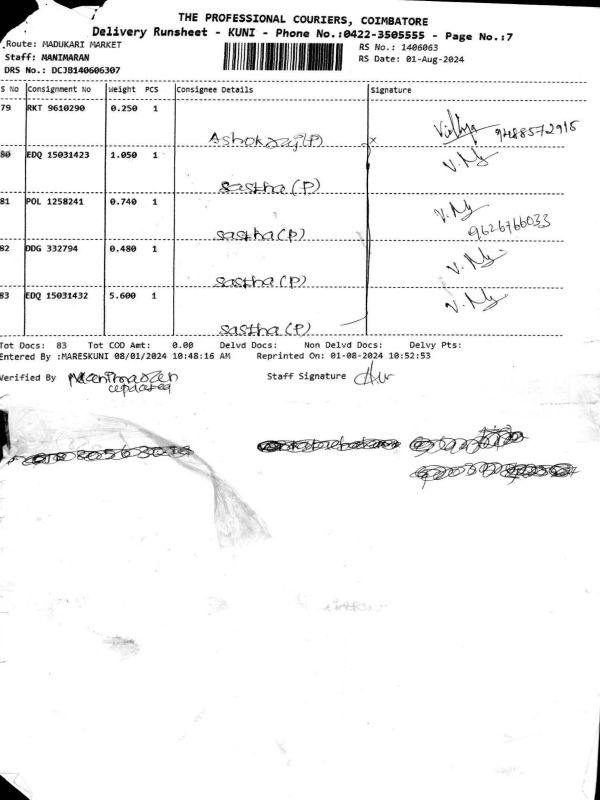 THE PROFESSIONAL COURIERS, COIMBATORE
Delivery Runsheet - KUNI - Phone No.:0422-3505555 - Page No.:7
Route: MADUKARI MARKET RS No.: 1406063
Staff: MANIMARAN RS Date: 01-Aug-2024
DRS No.: DCJB140606307
S No Consignment No Weight PCS Consignee Details Signature
79 RKT 9610290 0.250 1
Ashok (P) x Vidhya 9488572915
80 EDQ 15031423 1.050 1
sastha (P)
81 POL 1258241 0.740 1
sastha (P) 9626766033
82 DDG 332794 0.480 1
sastha (P)
83 EDQ 15031432 5.600 1
sastha (P)
Tot Docs: 83 Tot COD Amt: 0.00 Delvd Docs: Non Delvd Docs: Delvy Pts:
Entered By :MARESKUNI 08/01/2024 10:48:16 AM Reprinted On: 01-08-2024 10:52:53
Verified By Manimaran Staff Signature